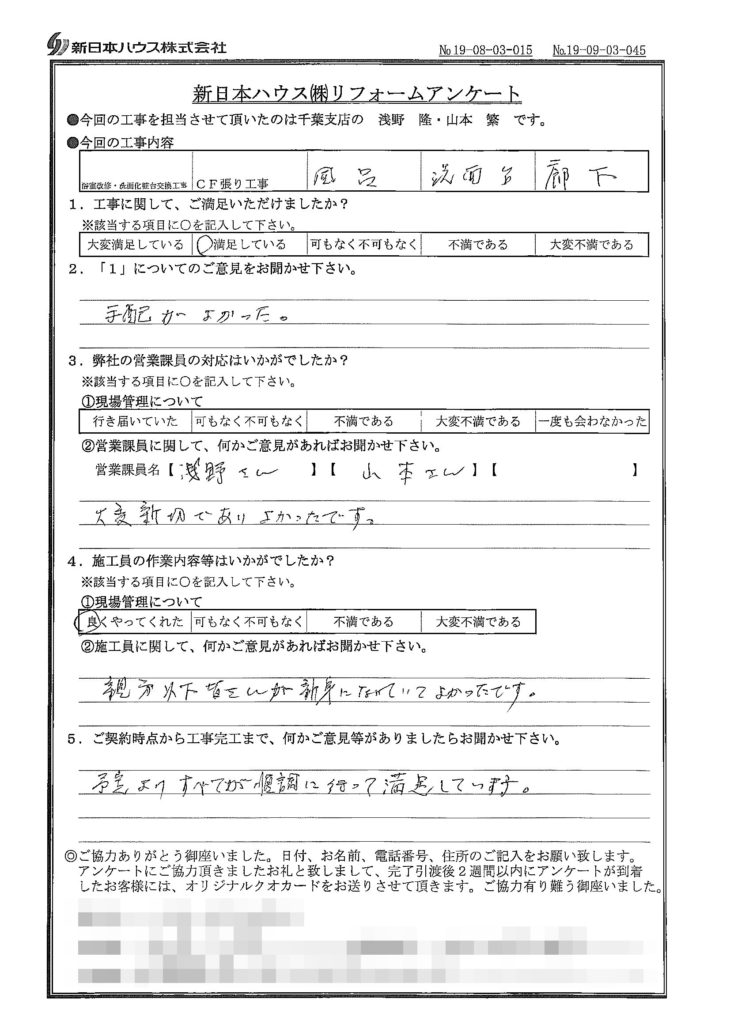 新日本ハウス株式会社
№19-08-03-015 №19-09-03-045
新日本ハウス㈱リフォームアンケート
●今回の工事を担当させて頂いたのは千葉支店の 浅野 隆・山本 繁 です。
●今回の工事内容
浴室改修・洗面化粧台交換工事 CF張り工事 風呂 洗面台 廊下
1．工事に関して、ご満足いただけましたか？
※該当する項目に〇を記入して下さい。
大変満足している 満足している 可もなく不可もなく 不満である 大変不満である
2．「1」についてのご意見をお聞かせ下さい。
手配がよかった。
3．弊社の営業課員の対応はいかがでしたか？
※該当する項目に〇を記入して下さい。
①現場管理について
行き届いていた 可もなく不可もなく 不満である 大変不満である 一度も会わなかった
②営業課員に関して、何かご意見があればお聞かせ下さい。
営業課員名【浅野さん】【山本さん】【 】
大変新切でありよかったです。
4．施工員の作業内容等はいかがでしたか？
※該当する項目に〇を記入して下さい。
①現場管理について
良くやってくれた 可もなく不可もなく 不満である 大変不満である
②施工員に関して、何かご意見があればお聞かせ下さい。
親方以下皆さんが新身になっていてよかったです。
5．ご契約時点から工事完工まで、何かご意見等がありましたらお聞かせ下さい。
予定よりすべてが順調に行って満足しています。
◎ご協力ありがとう御座いました。日付、お名前、電話番号、住所のご記入をお願い致します。
アンケートにご協力頂きましたお礼と致しまして、完了引渡後2週間以内にアンケートが到着
したお客様には、オリジナルクオカードをお送りさせて頂きます。ご協力有り難う御座いました。